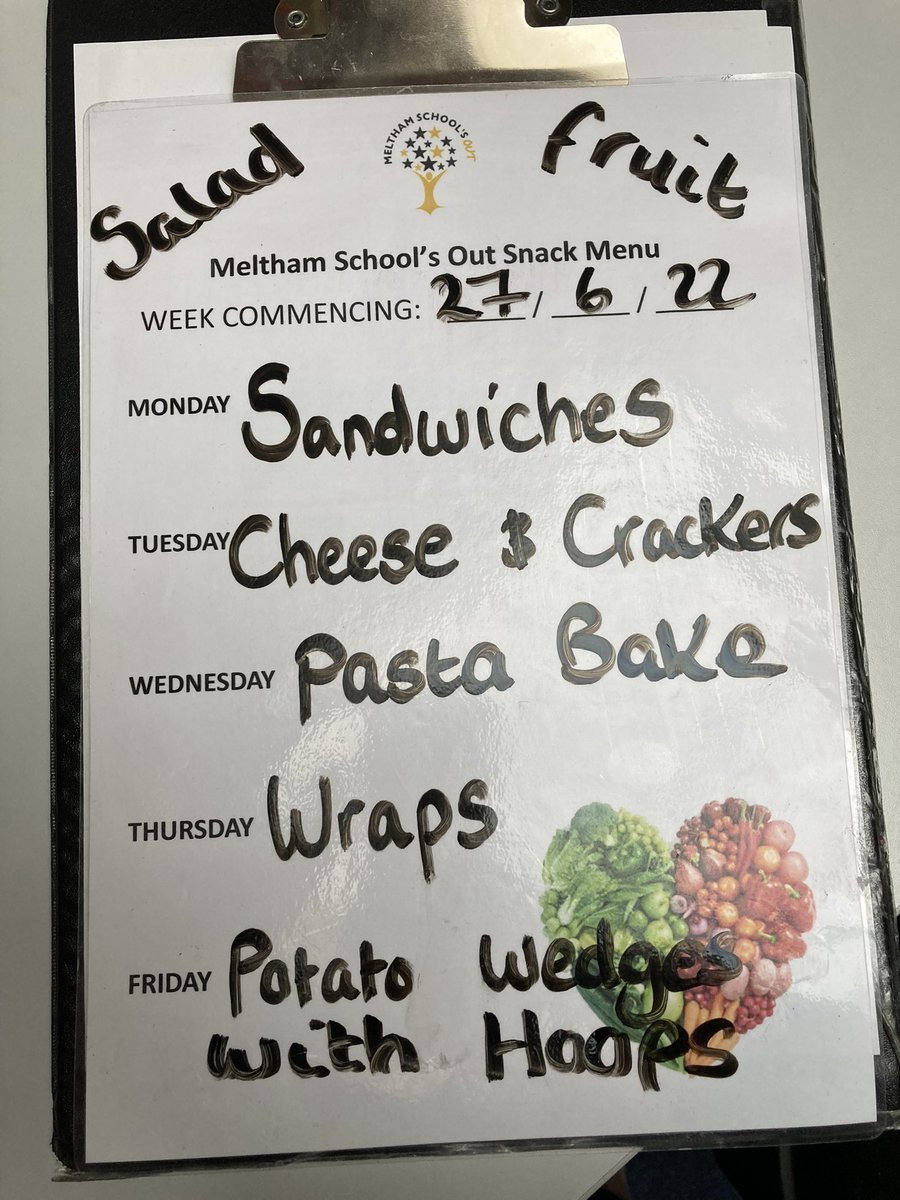 Salad
MELTHAM SCHOOL'S OUT
fruit
Meltham School's Out Snack Menu
WEEK COMMENCING: 27 / 6 / 22
MONDAY Sandwiches
TUESDAY Cheese & Crackers
WEDNESDAY Pasta Bake
THURSDAY Wraps
FRIDAY Potato Wedges
with Hoops